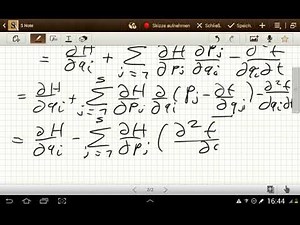 S Note
Skizze aufnehmen
Schließ.
Speich.
= ∂H/∂qᵢ + Σⱼ₌₁ˢ ∂H/∂pⱼ ∂pⱼ/∂qᵢ − ∂²f/∂qᵢ∂t
= ∂H/∂qᵢ + Σⱼ₌₁ˢ ∂H/∂pⱼ ∂/∂qᵢ (pⱼ − ∂f/∂qⱼ) − ∂²f/∂qᵢ∂t
= ∂H/∂qᵢ − Σⱼ₌₁ˢ ∂H/∂pⱼ ( ∂²f/∂
2/2
16:44